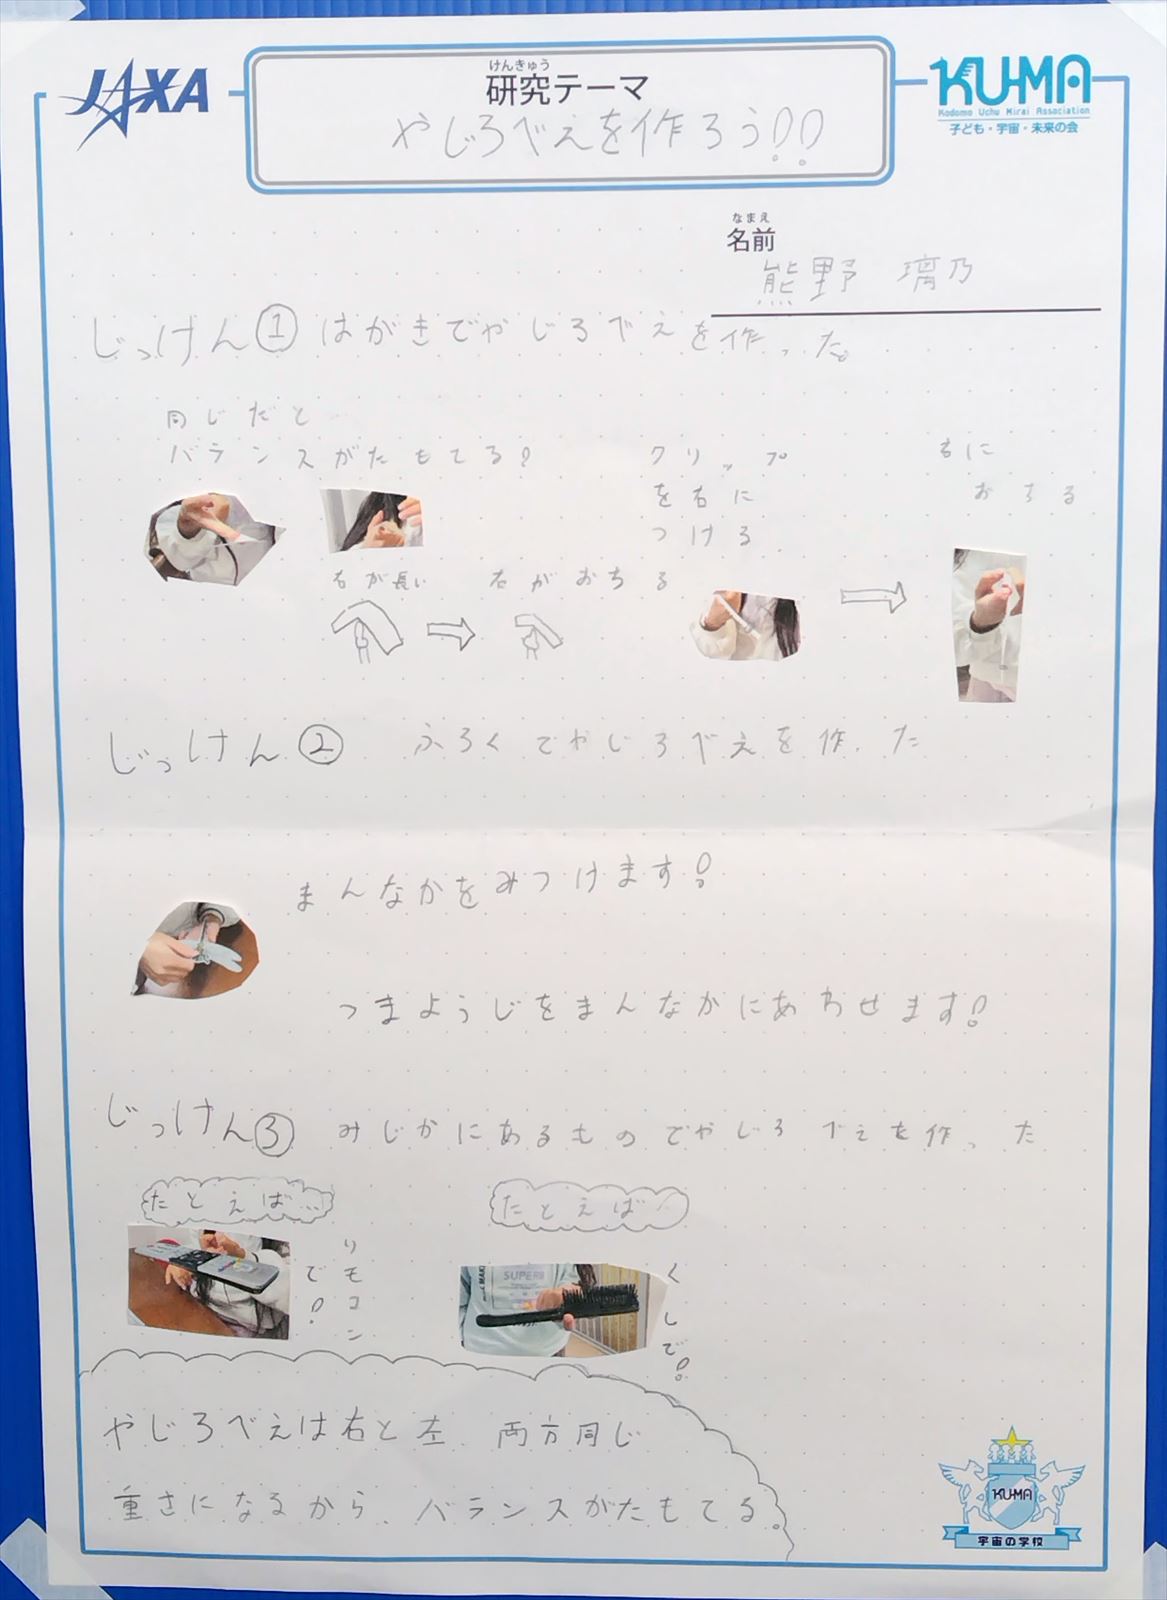 JAXA
けんきゅう
研究テーマ
やじろべえを作ろう!!
KU-MA
Kodomo Uchu Mirai Association
子ども・宇宙・未来の会
なまえ
名前
熊野 璃乃
じっけん① はがきでやじろべえを作った。
同じだと
バランスがたもてる!
クリップ
を右に
つける
右に
おちる
右が長い
右がおちる
じっけん② ふろくでやじろべえを作った
まんなかをみつけます!
つまようじをまんなかにあわせます!
じっけん③ みじかにあるものでやじろべえを作った
たとえば…
リモコン
で!
たとえば…
くしで!
SUPER
やじろべえは右と左、両方同じ
重さになるから、バランスがたもてる。
KU-MA
宇宙の学校